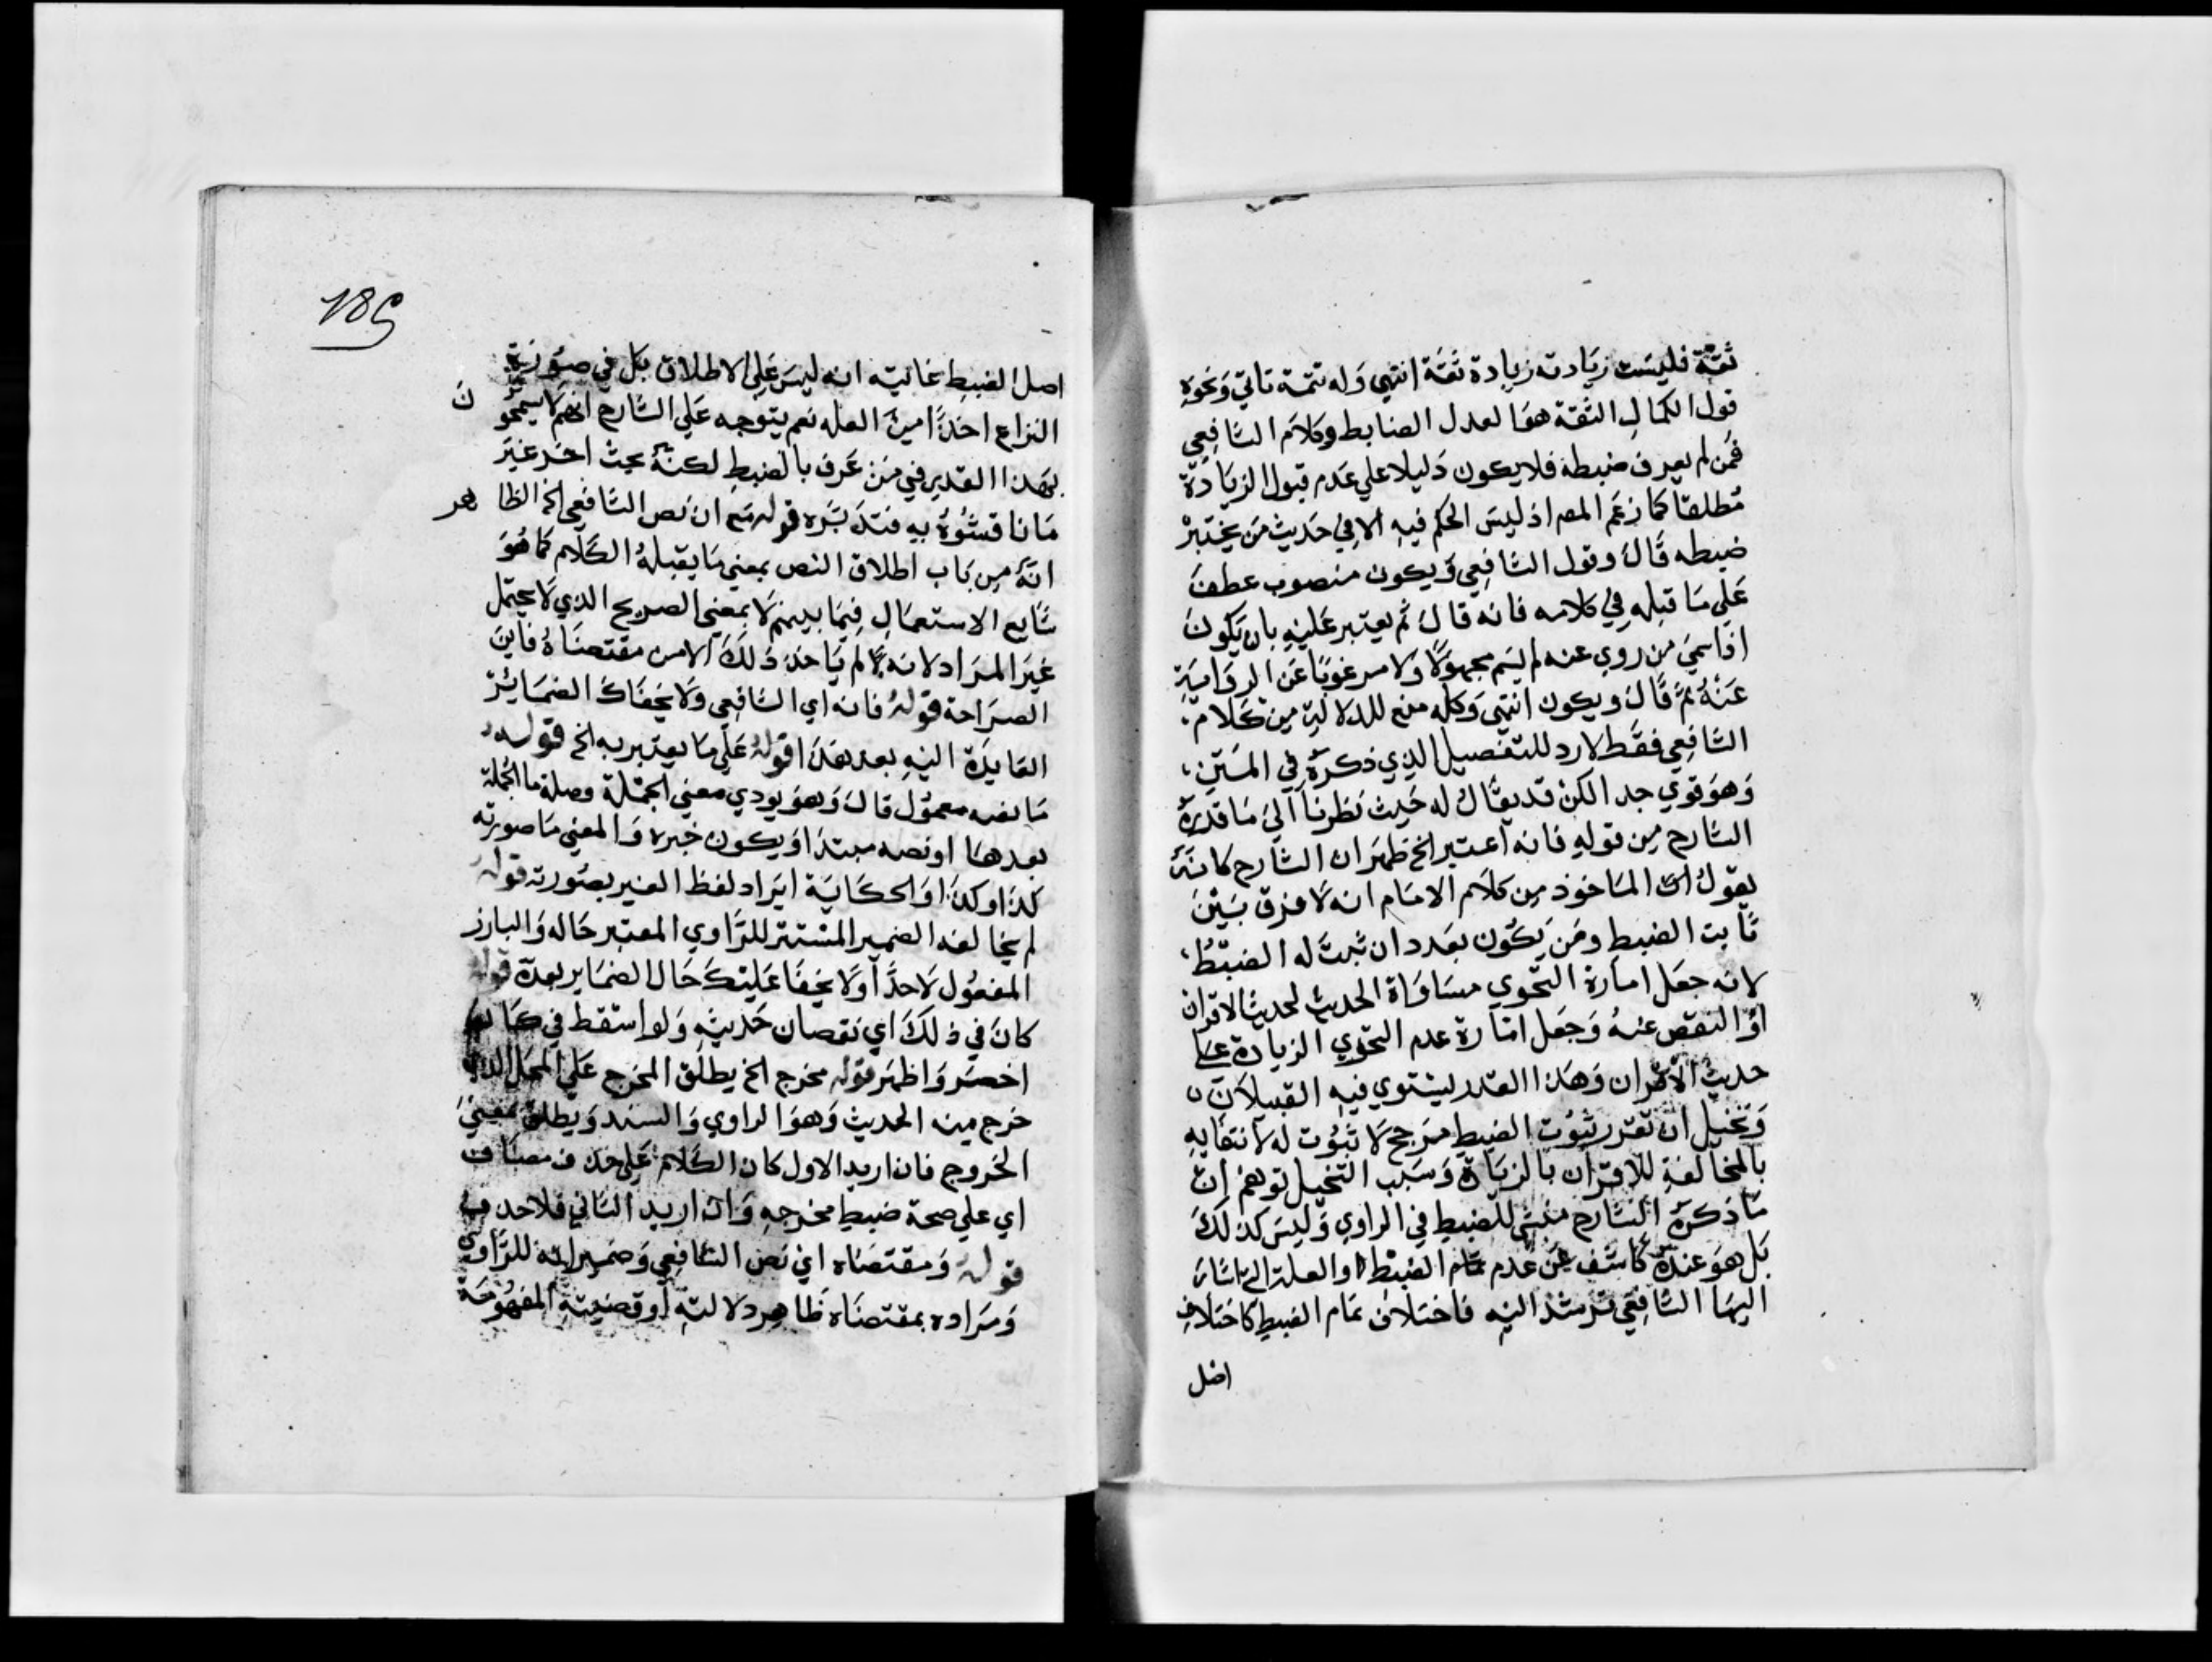 ثقة فليست زيادته زيادة ثقة انتهي وله تتمة تاتي ونحوه
قول الكمال الثقة هو العدل الضابط وكلام الشافعي
فمن لم يعرف ضبطه فلا يكون دليلا علي عدم قبول الزيادة
مطلقا كما زعم المص اذ ليس الحكم فيه الا في حديث من يختبر
ضبطه قال وقول الشافعي ويكون منصوب عطف
علي ما قبله في كلامه فانه قال ثم يعتبر عليه بان يكون
اذا سمي من روي عنه لم يسم مجهولا ولا مرغوبا عن الرواية
عنه ثم قال ويكون انتهي وكله منع للدلالة من كلام
الشافعي فقط لا رد للتفصيل الذي ذكره في المتن
وهو قوي جدا لكن قد يقال له حيث نظرنا الي ما قدره
الشارح من قوله فانه اعتبر الخ ظهر ان الشارح كانه
يقول ان الماخوذ من كلام الامام انه لا فرق بين
ثابت الضبط ومن يكون بعدد ان ثبت له الضبط
لانه جعل امارة التحري مساواة الحديث لحديث الاقران
او النقص عنه وجعل امارة عدم التحري الزيادة علي
حديث الاقران وهذا القدر ليستوي فيه القبيلان
وتخيل ان تقرر ثبوت الضبط مرجح لا ثبوت له لانتفايه
بالمخالفة للاقران بالزيادة وسبب التخيل توهم ان
ما ذكره الشارح منشي للضبط في الراوي وليس كذلك
بل هو عنده كاشف عن عدم تمام الضبط والعلة التي اشار
اليها الشافعي ترشد اليه فاختلاف تمام الضبط كاختلاف
اصل
185
اصل الضبط غايته انه ليس علي الاطلاق بل في صورة
النزاع اخذا من العلة نعم يتوجه علي الشارح انهم لا يسمحو ن
بهذا القدر في من عرف بالضبط لكنه بحث اخر غير
ما ناقشوه به فتدبره قوله ثم ان نص الشافعي الخ الظا هر
انه من باب اطلاق النص بمعني ما يقبله الكلام كما هو
شايع الاستعمال فيما بينهم لا بمعني الصريح الذي لا يحتمل
غير المراد لانه لم ياخذ ذلك الا من مقتضاه فاين
الصراحة قوله فانه اي الشافعي ولا يخفاك الضمائر
العايدة اليه بعد هذا قوله علي ما يعتبر به الخ قوله
ما نصه معمول قال وهو يودي معني الجملة وصلة ما الجملة
بعدها او نصه مبتدا ويكون خبره والمعني ما صورته
كذا وكذا والحكاية ايراد لفظ الغير بصورته قوله
لم يخالفه الضمير المستتر للراوي المعتبر حاله والبارز
المفعول لاحد اولا يخفا عليك حال الضماير بعده قوله
كان في ذلك اي نقصان حديثه ولو اسقط في كان
اخصر واظهر قوله مخرج الخ يطلق المخرج علي المحل الذي
خرج منه الحديث وهو الراوي والسند ويطلق بمعني
الخروج فان اريد الاول كان الكلام علي حذف مضاف
اي علي صحة ضبط مخرجه وان اريد الثاني فلا حذف
قوله ومقتضاه اي نص الشافعي وضمير انه للراوي
ومراده بمقتضاه ظاهر دلالته او قضيته المفهومة